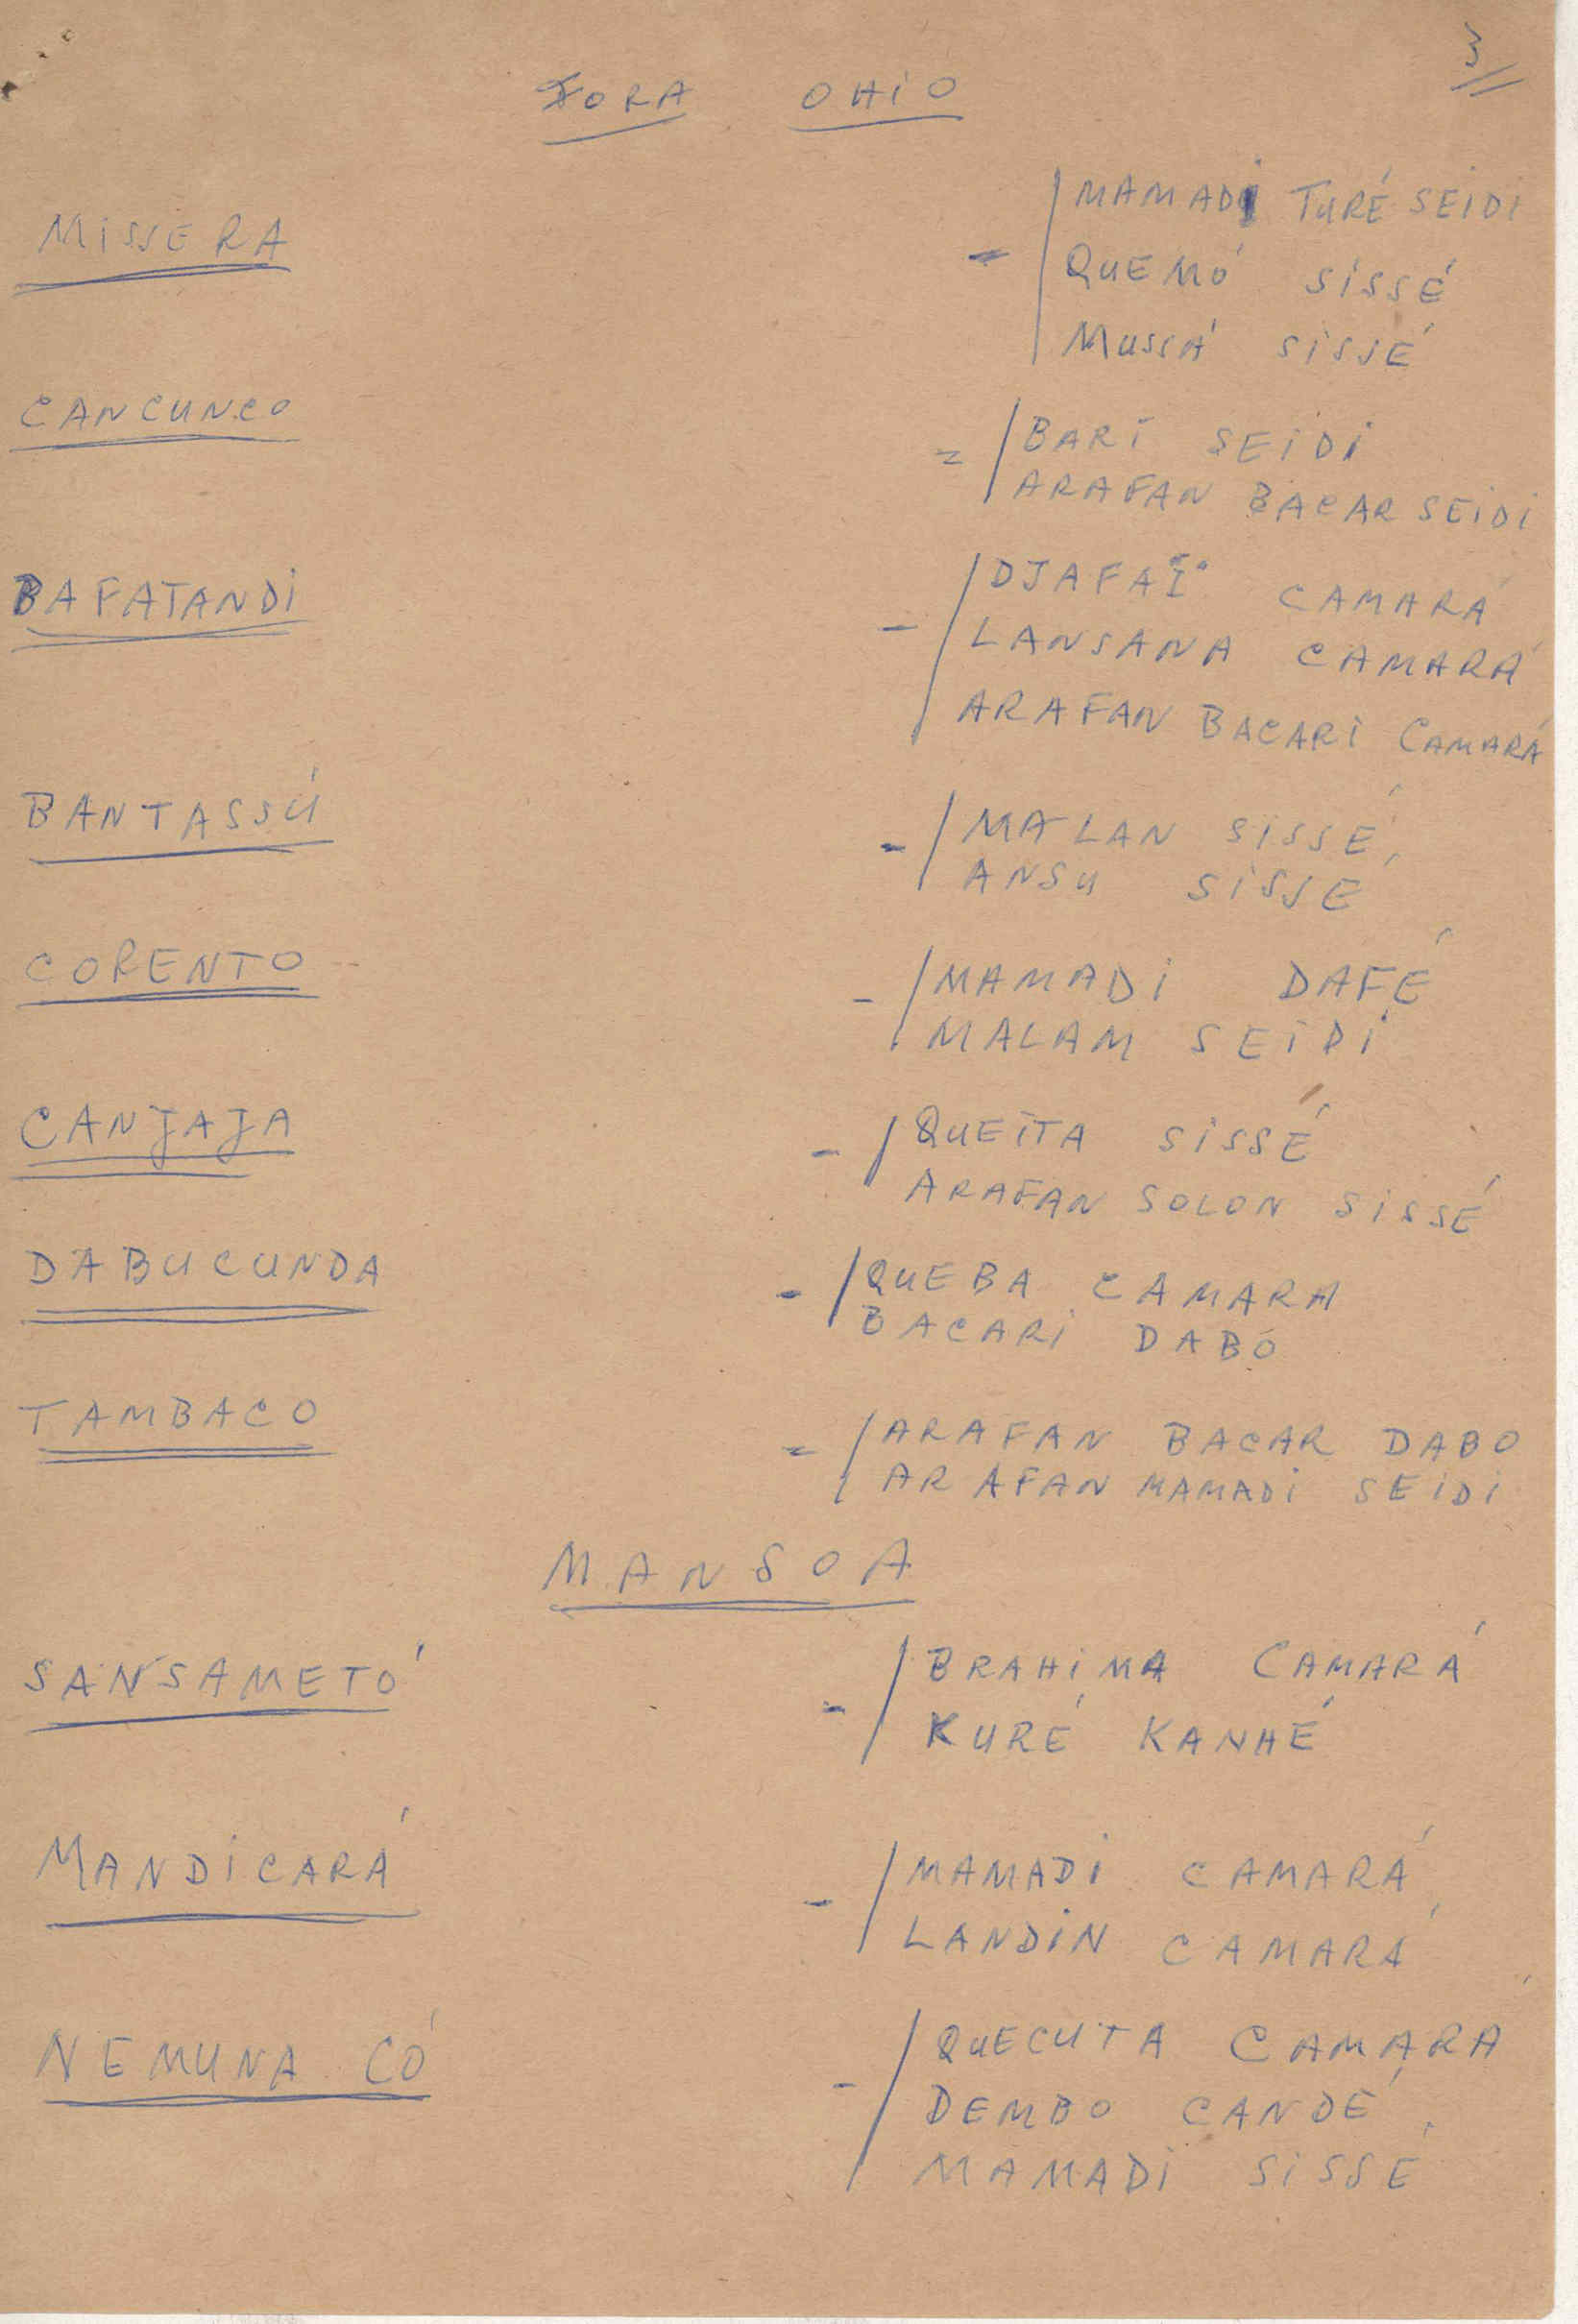 3
FORA OHIO
MISSERA - MAMADI TURÉ SEIDI
QUEMÓ SISSÉ
MUSSÁ SISSÉ
CANCUNCO = BARI SEIDI
ARAFAN BACAR SEIDI
BAFATANDI - DJAFAI CAMARÁ
LANSANA CAMARÁ
ARAFAN BACARI CAMARÁ
BANTASSÚ - MALAN SISSÉ
ANSU SISSÉ
CORENTO - MAMADI DAFÉ
MALAM SEIDI
CANJAJA - QUEITA SISSÉ
ARAFAN SOLON SISSÉ
DABUCUNDA - QUEBA CAMARA
BACARI DABÓ
TAMBACO = ARAFAN BACAR DABO
ARAFAN MAMADI SEIDI
MANSOA
SANSAMETÓ - BRAHIMA CAMARÁ
KURÉ KANHÉ
MANDICARÁ - MAMADI CAMARÁ
LANDIN CAMARÁ
NEMUNA CÓ - QUECUTA CAMARÁ
DEMBO CANDÉ
MAMADI SISSÉ